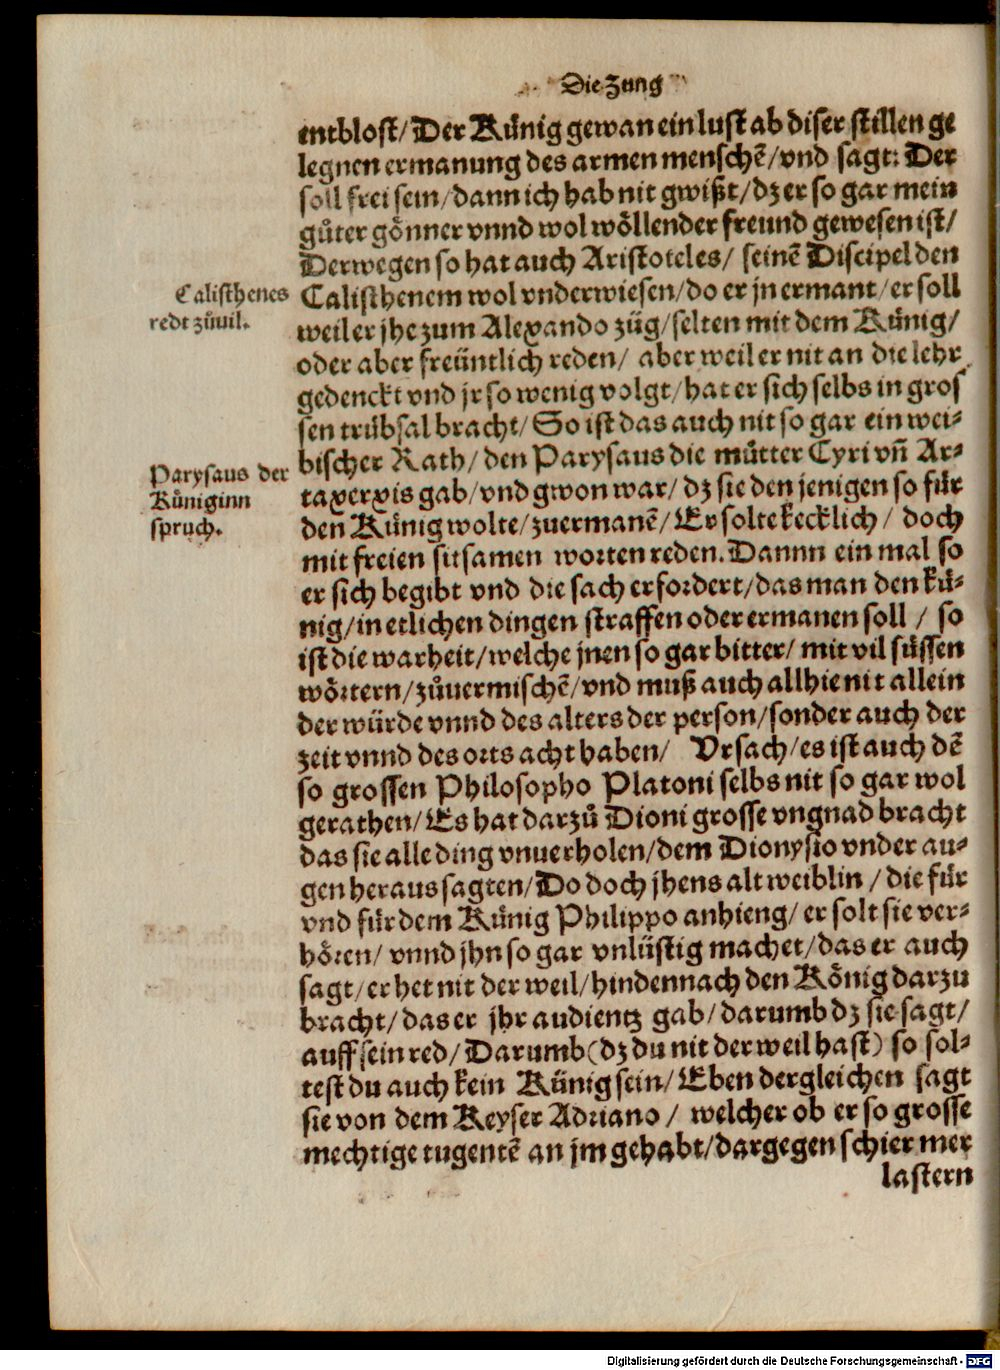 Die Zung
entblost/Der Künig gewan ein lust ab diser stillen ge
legnen ermanung des armen menschẽ/vnd sagt: Der
soll frei sein/dann ich hab nit gwißt/dz er so gar mein
gůter gönner vnnd wol wöllender freund gewesen ist/
Derwegen so hat auch Aristoteles/ seinẽ Discipel den
Calisthenes
Calisthenem wol vnderwiesen/do er jn ermant/er soll
redt zůuil.
weil er jhe zum Alexando züg/selten mit dem Künig/
oder aber freüntlich reden/ aber weil er nit an die lehr
gedenckt vnd jr so wenig volgt/hat er sich selbs in gros
sen trübsal bracht/ So ist das auch nit so gar ein wei-
Parysaus der
bischer Rath/ den Parysaus die můtter Cyri vñ Ar-
Küniginn
taxerxis gab/vnd gwon war/ dz sie den jenigen so für
spruch.
den Künig wolte/zuermanẽ/Er solte kecklich/ doch
mit freien sitsamen worten reden. Dannn ein mal so
er sich begibt vnd die sach erfordert/das man den kü-
nig/in etlichen dingen straffen oder ermanen soll / so
ist die warheit/welche jnen so gar bitter/ mit vil süssen
wörtern/zůuermischẽ/vnd muß auch allhie nit allein
der würde vnnd des alters der person/sonder auch der
zeit vnnd des orts acht haben/ Vrsach/es ist auch dẽ
so grossen Philosopho Platoni selbs nit so gar wol
gerathen/Es hat darzů Dioni grosse vngnad bracht
das sie alle ding vnuerholen/dem Dionysio vnder au-
gen heraus sagten/Do doch jhens alt weiblin /die für
vnd für dem Künig Philippo anhieng/ er solt sie ver-
hören/ vnnd jhn so gar vnlüstig machet/das er auch
sagt/er het nit der weil/hindennach den König darzu
bracht/das er jhr audientz gab/darumb dz sie sagt/
auff sein red/Darumb(dz du nit der weil hast) so sol-
test du auch kein Künig sein/Eben dergleichen sagt
sie von dem Keyser Adriano/ welcher ob er so grosse
mechtige tugentẽ an jm gehabt/dargegen schier mer
lastern
Digitalisierung gefördert durch die Deutsche Forschungsgemeinschaft - DFG